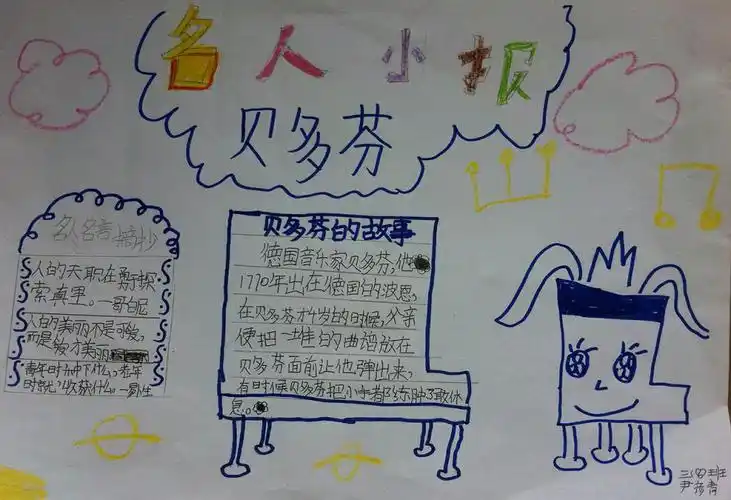 名人小报
贝多芬
名人名言摘抄
人的天职在勇于探
索真里。一哥白尼
人的美丽不是可爱,
而是
青年时种下什么,老年
时就收获什么。一易卜生
贝多芬的故事
德国音乐家贝多芬,他
1770年出在德国的波恩,
在贝多芬才4岁的时候,父亲
便把一堆的曲谱放在
贝多芬面前让他弹出来,
有时候贝多芬把小手都练肿了敢休
息。
三(8)班
尹